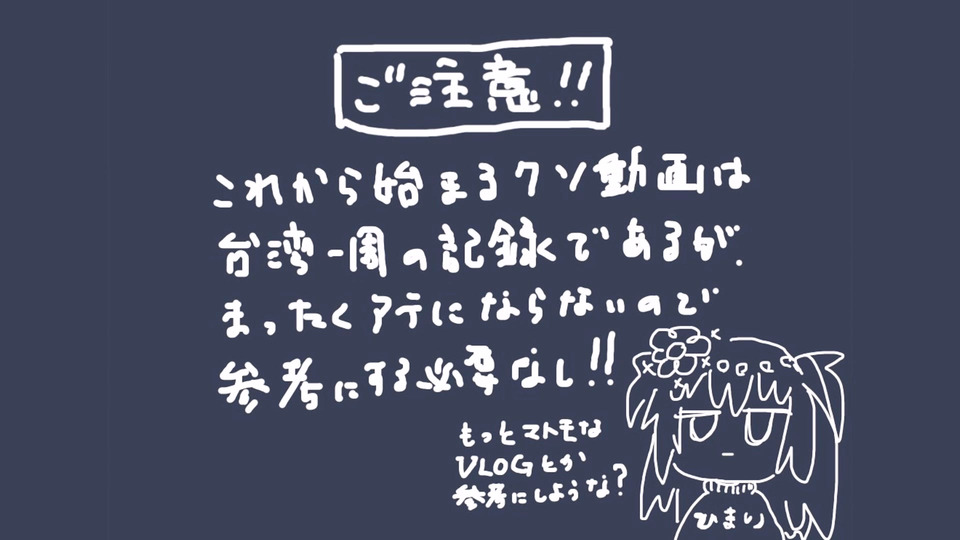 ご注意!!
これから始まるクソ動画は
台湾一周の記録であるが、
まったくアテにならないので
参考にする必要なし!!
もっとマトモな
VLOGとか
参考にしような?
ひまり